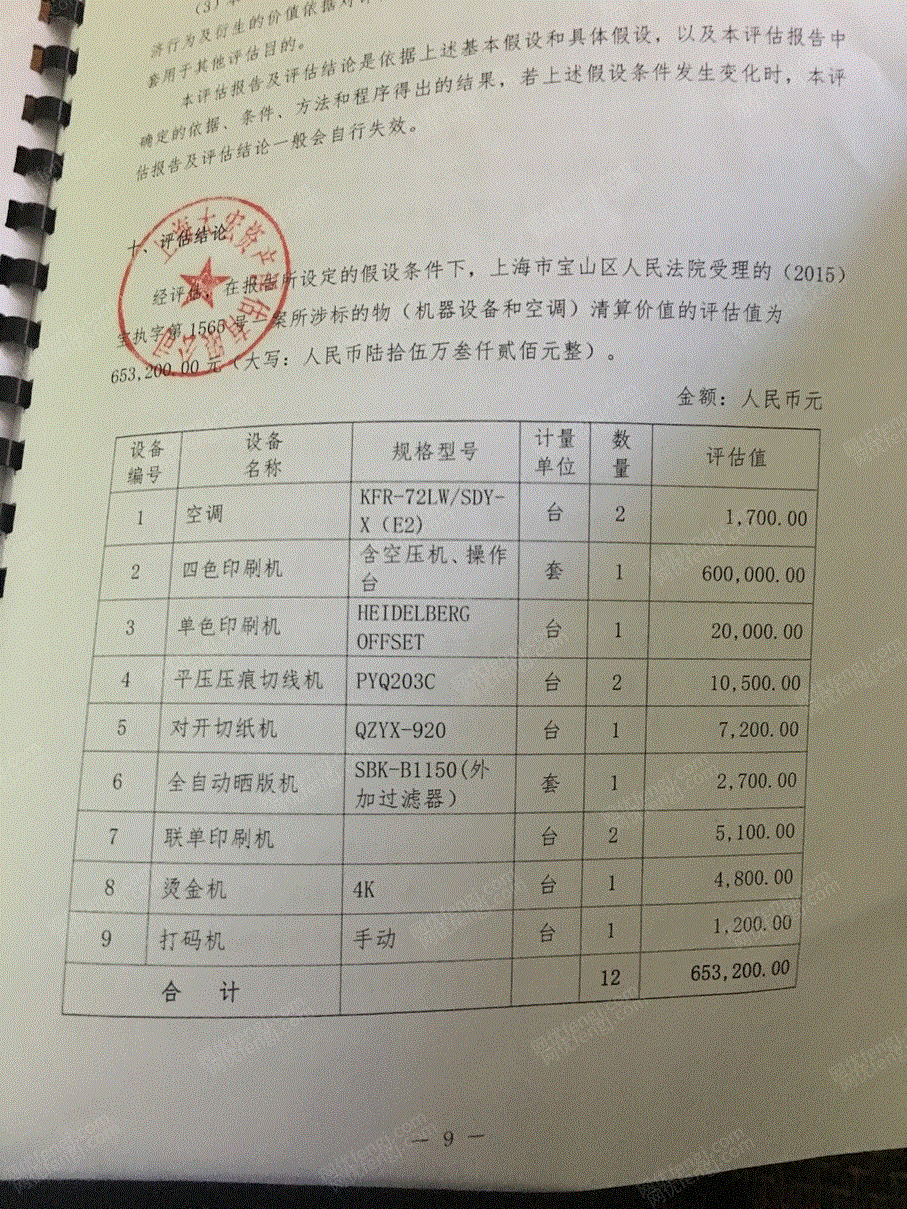 (3)本
济行为及衍生的价值依据对评
套用于其他评估目的。
本评估报告及评估结论是依据上述基本假设和具体假设，以及本评估报告中
确定的依据、条件、方法和程序得出的结果，若上述假设条件发生变化时，本评
估报告及评估结论一般会自行失效。
十、评估结论
经评估，在报告所设定的假设条件下，上海市宝山区人民法院受理的（2015）
宝执字第1565号一案所涉标的物（机器设备和空调）清算价值的评估值为
653,200.00元（大写：人民币陆拾伍万叁仟贰佰元整）。
金额：人民币元
设备编号 设备名称 规格型号 计量单位 数量 评估值
1 空调 KFR-72LW/SDY-X（E2） 台 2 1,700.00
2 四色印刷机 含空压机、操作台 套 1 600,000.00
3 单色印刷机 HEIDELBERG OFFSET 台 1 20,000.00
4 平压压痕切线机 PYQ203C 台 2 10,500.00
5 对开切纸机 QZYX-920 台 1 7,200.00
6 全自动晒版机 SBK-B1150(外加过滤器） 套 1 2,700.00
7 联单印刷机 台 2 5,100.00
8 烫金机 4K 台 1 4,800.00
9 打码机 手动 台 1 1,200.00
合 计 12 653,200.00
— 9 —